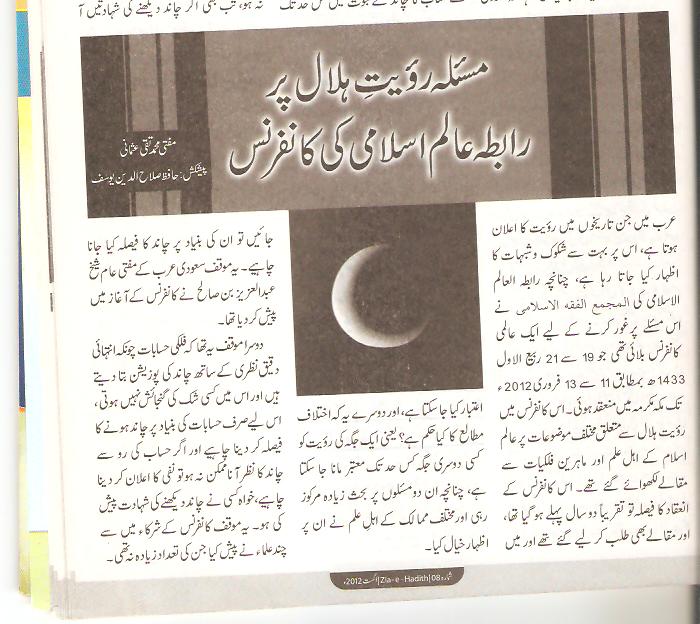 نہ ہو، تب بھی اگر چاند دیکھنے کی شہادتیں آ
مسئلہ رؤیتِ ہلال پر
رابطہ عالم اسلامی کی کانفرنس
مفتی محمد تقی عثمانی
پیشکش: حافظ صلاح الدین یوسف
عرب میں جن تاریخوں میں رؤیت کا اعلان
ہوتا ہے، اس پر بہت سے شکوک و شبہات کا
اظہار کیا جاتا رہا ہے، چنانچہ رابطہ العالم
الاسلامی کی المجمع الفقہ الاسلامی نے
اس مسئلے پر غور کرنے کے لیے ایک عالمی
کانفرنس بلائی تھی جو 19 سے 21 ربیع الاول
1433ھ بمطابق 11 سے 13 فروری 2012ء
تک مکہ مکرمہ میں منعقد ہوئی۔ اس کانفرنس میں
رؤیت ہلال سے متعلق مختلف موضوعات پر عالم
اسلام کے اہل علم اور ماہرین فلکیات سے
مقالے لکھوائے گئے تھے۔ اس کانفرنس کے
انعقاد کا فیصلہ تو تقریباً دو سال پہلے ہو گیا تھا،
اور مقالے بھی طلب کر لیے گئے تھے اور میں
اعتبار کیا جا سکتا ہے، اور دوسرے یہ کہ اختلاف
مطالع کا کیا حکم ہے؟ یعنی ایک جگہ کی رؤیت کو
کسی دوسری جگہ کس حد تک معتبر مانا جا سکتا
ہے، چنانچہ ان دو مسئلوں پر بحث زیادہ مرکوز
رہی اور مختلف ممالک کے اہل علم نے ان پر
اظہار خیال کیا۔
جائیں تو ان کی بنیاد پر چاند کا فیصلہ کیا جانا
چاہیے۔ یہ موقف سعودی عرب کے مفتی عام شیخ
عبدالعزیز بن صالح نے کانفرنس کے آغاز میں
پیش کر دیا تھا۔
دوسرا موقف یہ تھا کہ فلکی حسابات چونکہ انتہائی
دقیق نظری کے ساتھ چاند کی پوزیشن بتا دیتے
ہیں اور اس میں کسی شک کی گنجائش نہیں ہوتی،
اس لیے صرف حسابات کی بنیاد پر چاند ہونے کا
فیصلہ کر دینا چاہیے اور اگر حساب کی رو سے
چاند کا نظر آنا ممکن نہ ہو تو نفی کا اعلان کر دینا
چاہیے، خواہ کسی نے چاند دیکھنے کی شہادت پیش
کی ہو۔ یہ موقف کانفرنس کے شرکاء میں سے
چند علماء نے پیش کیا جن کی تعداد زیادہ نہ تھی۔
شمارہ 08 | Zia-e-Hadith | اگست 2012ء